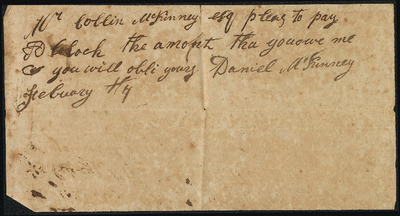 Mr Collin McKinney esq pleas to pay
B block the amont tha you owe me
& you will obli yours Daniel McKinney
Febuary th 7